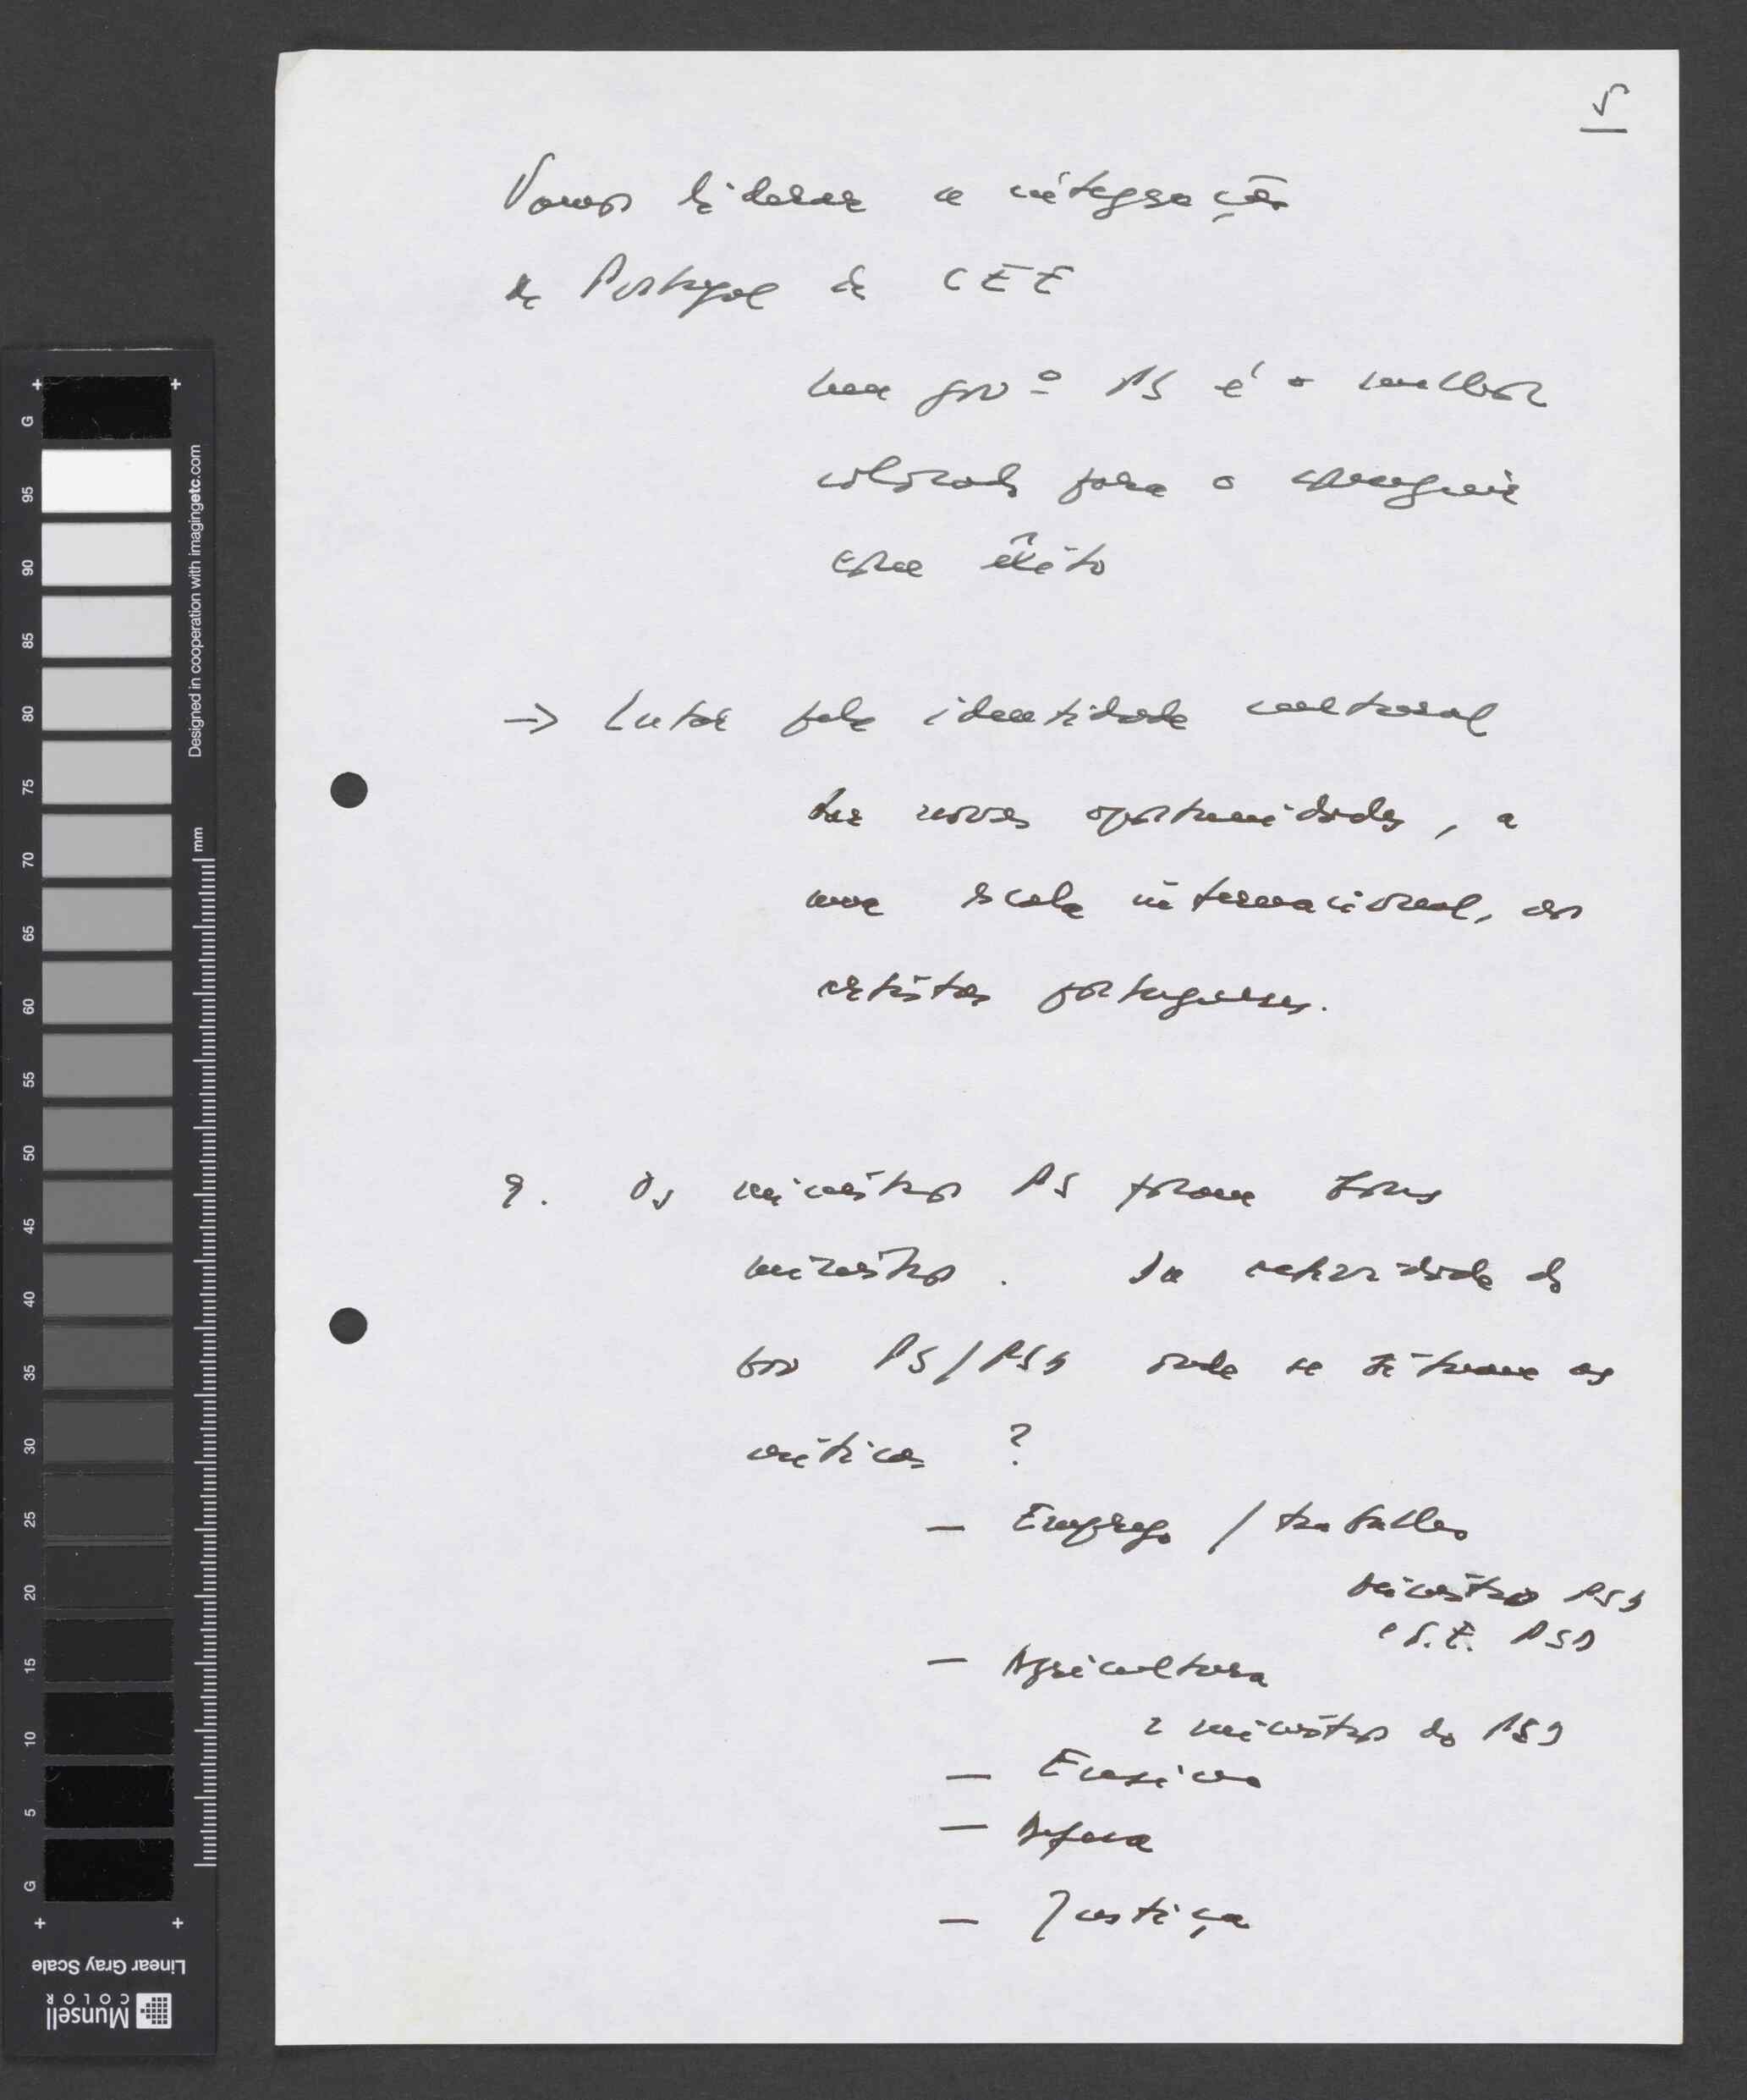 5
Vamos liderar a integração
de Portugal na CEE
um govº PS é o melhor
colocado para o conseguir
com êxito
→ Lutar pela identidade cultural
dar novas oportunidades, a
uma escala internacional, aos
artistas portugueses.
9. Os ministros PS foram bons
ministros. Na actividade do
gov PS/PSD onde se situam as
críticas ?
— Emprego / trabalho
ministro PSD
e S.E. PSD
— Agricultura
2 ministros do PSD
— Ensino
— Defesa
— Justiça
G 95 90 85 80 75 70 65 60 55 50 45 40 35 30 25 20 15 10 5 G
Designed in cooperation with imagingetc.com
mm
Linear Gray Scale
Munsell
COLOR